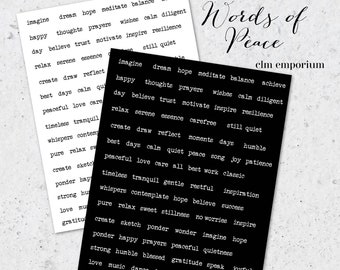 Words of
Peace
clm emporium
imagine dream hope meditate balance
happy thoughts prayers wishes calm
day believe trust motivate inspire
relax serene essence
still quiet
create draw reflect
best days calm
peaceful love care
timeless tranquil
whispers
pure relax
create
ponder
strong
love
imagine dream hope meditate balance achieve
happy thoughts prayers wishes calm diligent
day believe trust motivate inspire resilience
relax serene essence carefree still quiet
create draw reflect moments days humble
best days calm quiet peace song joy patience
peaceful love care all best work classic
timeless tranquil gentle restful inspiration
whispers contemplate hope believe success
pure relax sweet stillness no worries inspire
create sketch ponder wonder imagine hope
ponder happy prayers peaceful quietness
strong humble blessed gratitude speak joyful
love music